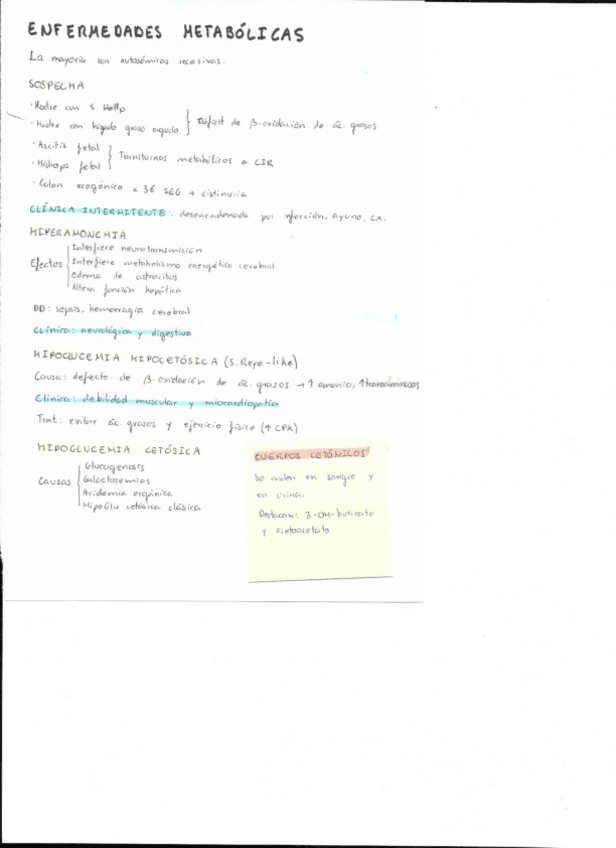 ENFERMEDADES METABÓLICAS
La mayoría son autosómicas recesivas.
SOSPECHA
· Madre con S. Hellp
· Madre con hígado graso agudo } Déficit de β-oxidación de ác. grasos
· Ascitis fetal
· Hidrops fetal } Transtornos metabólicos o CIR
· Colon ecogénico < 36 SEG → cistinuria
CLÍNICA INTERMITENTE: desencadenada por infección, ayuno, cx.
HIPERAMONEMIA
Efectos
Interfiere neurotransmisión
Interfiere metabolismo energético cerebral
Edema de astrocitos
Altera función hepática
DD: sepsis, hemorragia cerebral
Clínica: neurológica y digestiva
HIPOGLUCEMIA HIPOCETÓSICA (S. Reye-like)
Causa: defecto de β-oxidación de ác. grasos → ↑ amonio, ↑ transaminasas
Clínica: debilidad muscular y miocardiopatía
Trat: evitar ác. grasos y ejercicio físico (↑ CPK)
HIPOGLUCEMIA CETÓSICA
Causas
Glucogenosis
Galactosemias
Acidemia orgánica
HipoGlu cetósica clásica
CUERPOS CETÓNICOS
Se miden en sangre y
en orina.
Destacan: 3-OH-butirato
y acetoacetato